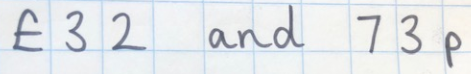 £32 and 73p